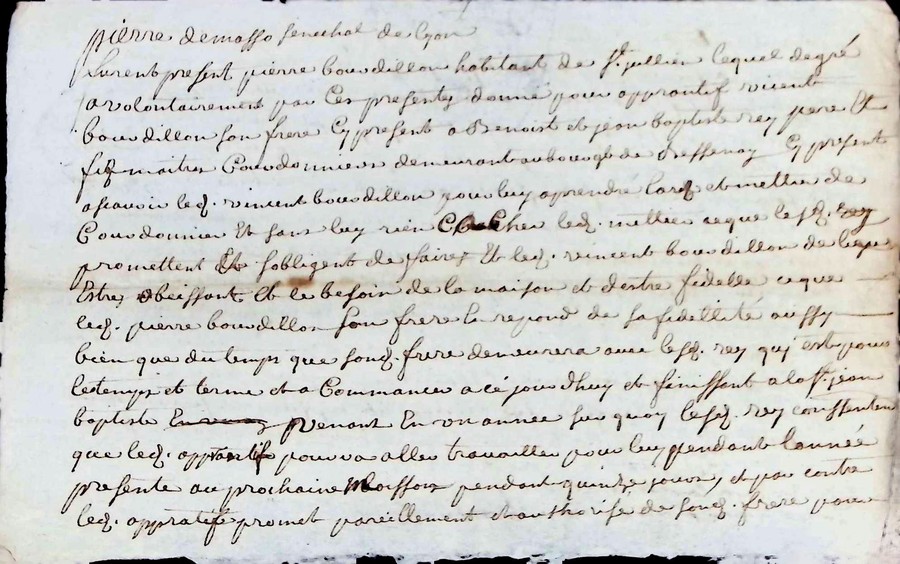 pierre demasso senechal de Lyon
furent present pierre bourdillon habitant de St. jullien lequel de gré
a volontairement par ces presentes donné pour apprantif vincent
bourdillon son frere Cy present a Benoist et jean baptiste rey pere Et
fiz maitres Courdonniers demeurant au bourg de Bressenay Cy present
ascavoir led. vincent bourdillon pour luy aprendre lard et mettier de
Courdonnier Et sans luy rien Cacher led. mettier ce que lesd. rey
promettent Et sobligent de faire Et led. vincent bourdillon de leur
Estre obeissant Et le besoin de la maison et destre fidelle ce que
led. pierre bourdillon son frere la repond de sa fidellité aussy
bien que du temps que sond. frere demeurera avec lesd. rey quj est pour
le temps et terme et a Commancer a cé jourdhuy et finissant a la St. jean
baptiste prenant En un annee sur quoy lesd. rey consentent
que led. apprantif pourra aller travailler pour luy pendant lannée
presente au prochaine Moisson pendant quinze jours, et par contre
led. appratif promet pareillement et authorisé de sond. frere pour